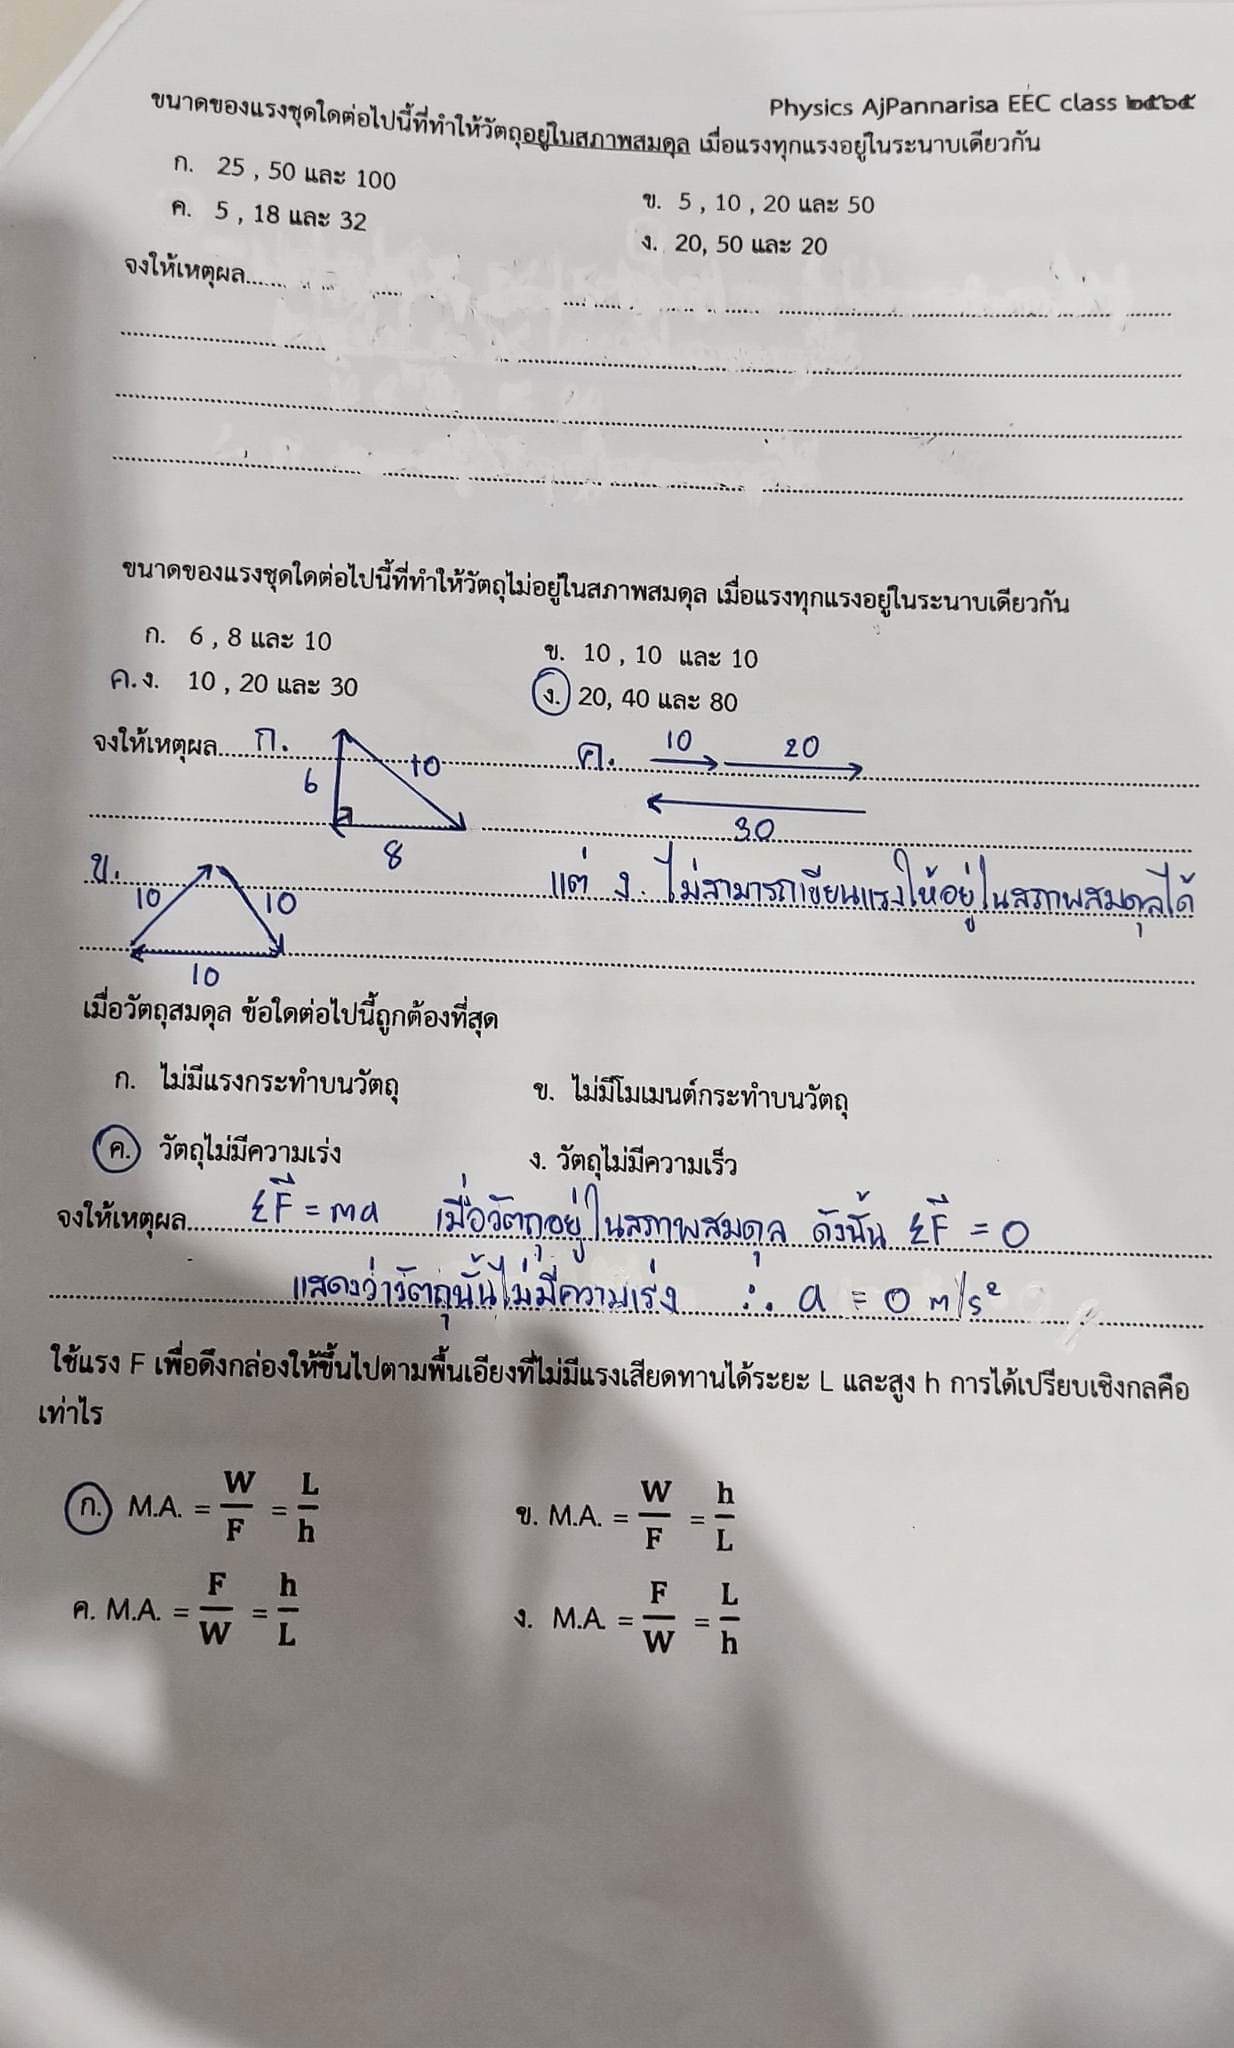 Physics AjPannarisa EEC class ๒๕๖๕
ขนาดของแรงชุดใดต่อไปนี้ที่ทำให้วัตถุอยู่ในสภาพสมดุล เมื่อแรงทุกแรงอยู่ในระนาบเดียวกัน
ก. 25 , 50 และ 100
ข. 5 , 10 , 20 และ 50
ค. 5 , 18 และ 32
ง. 20, 50 และ 20
จงให้เหตุผล
ขนาดของแรงชุดใดต่อไปนี้ที่ทำให้วัตถุไม่อยู่ในสภาพสมดุล เมื่อแรงทุกแรงอยู่ในระนาบเดียวกัน
ก. 6 , 8 และ 10
ข. 10 , 10 และ 10
ค.ง. 10 , 20 และ 30
ง. 20, 40 และ 80
จงให้เหตุผล ก. 6 10 8
ค. 10 20 30
ข. 10 10 10
แต่ ง. ไม่สามารถเขียนแรงให้อยู่ในสภาพสมดุลได้
เมื่อวัตถุสมดุล ข้อใดต่อไปนี้ถูกต้องที่สุด
ก. ไม่มีแรงกระทำบนวัตถุ
ข. ไม่มีโมเมนต์กระทำบนวัตถุ
ค. วัตถุไม่มีความเร่ง
ง. วัตถุไม่มีความเร็ว
จงให้เหตุผล Σ\vec{F} = ma เมื่อวัตถุอยู่ในสภาพสมดุล ดังนั้น Σ\vec{F} = 0
แสดงว่าวัตถุนั้นไม่มีความเร่ง ∴ a = 0 m/s²
ใช้แรง F เพื่อดึงกล่องให้ขึ้นไปตามพื้นเอียงที่ไม่มีแรงเสียดทานได้ระยะ L และสูง h การได้เปรียบเชิงกลคือ
เท่าไร
ก. M.A. = W/F = L/h
ข. M.A. = W/F = h/L
ค. M.A. = F/W = h/L
ง. M.A. = F/W = L/h